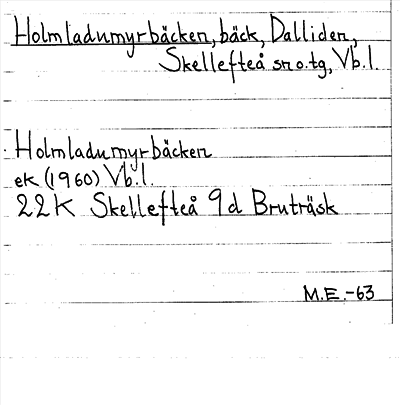 Holmladumyrbäcken, bäck, Dalliden,
Skellefteå sn o. tg, Vb. l.
Holmladumyrbäcken
ek (1960) Vb. l.
22K Skellefteå 9d Bruträsk
M.E.-63